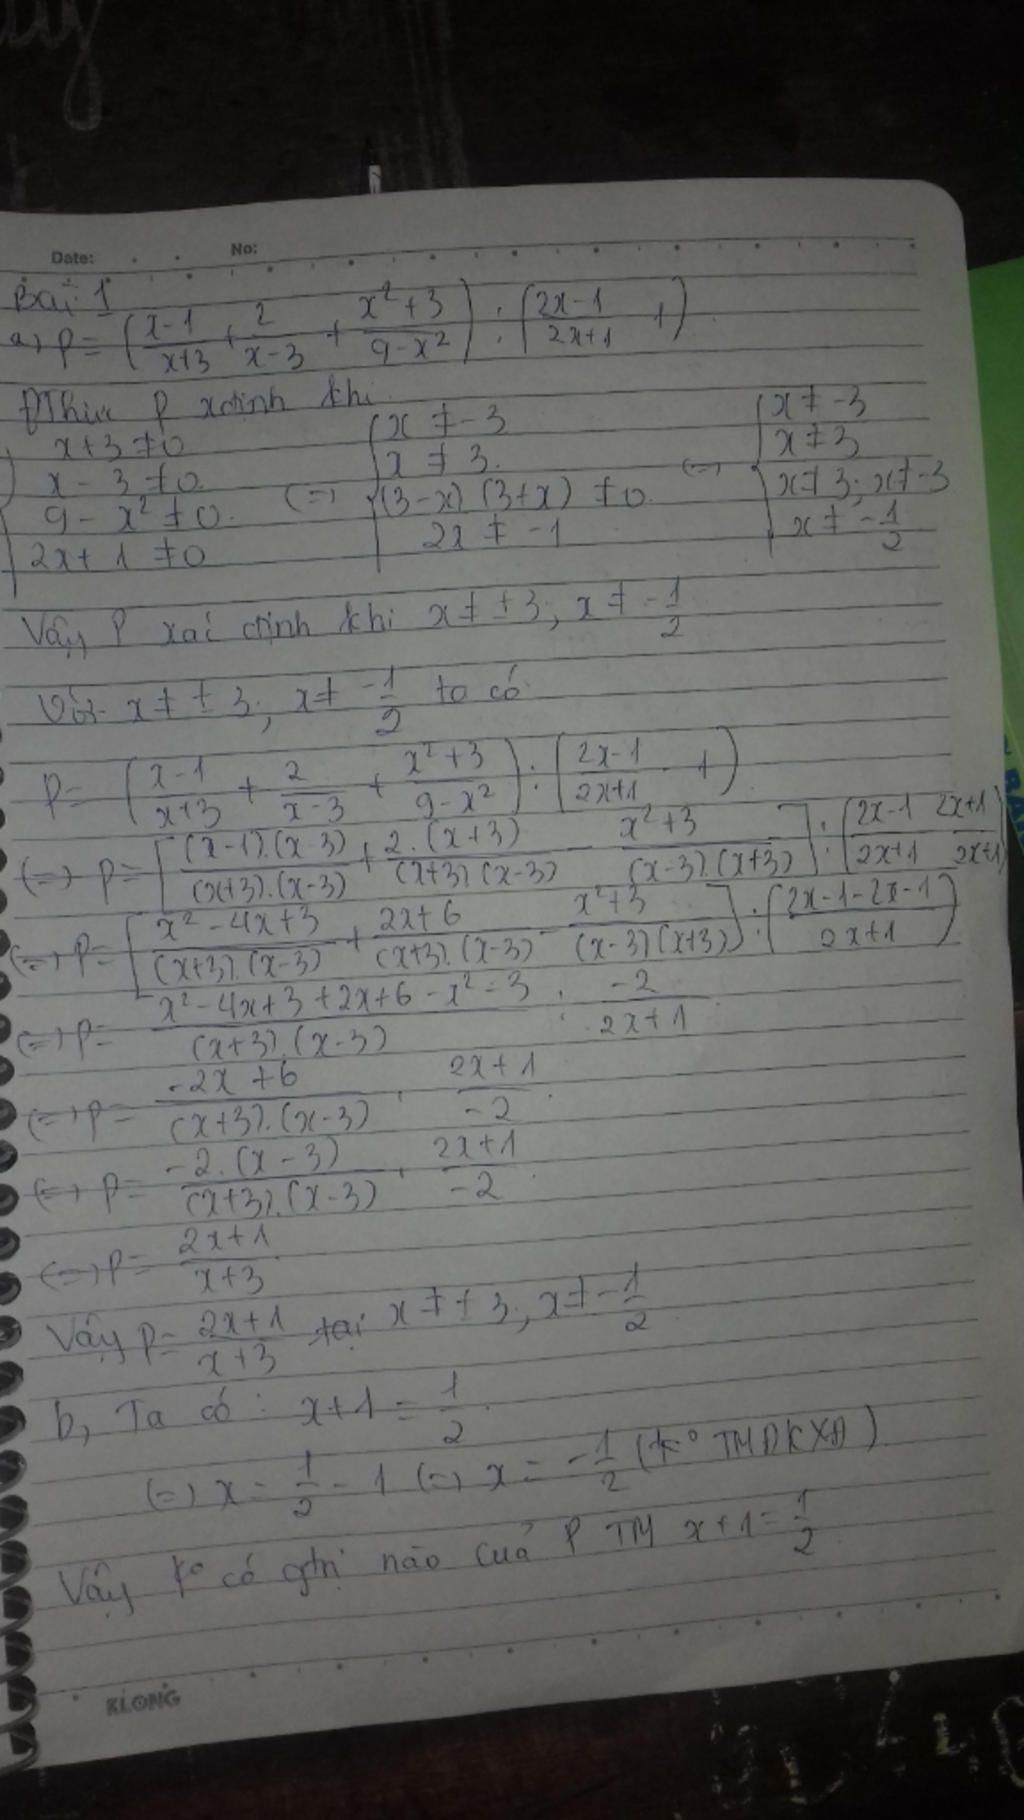 Date: No:
Bài 1
a, P = (x-1/x+3 + 2/x-3 + x²+3/9-x²) : (2x-1/2x+1 - 1)
ĐThức P xđịnh khi
{x+3≠0 {x≠-3 {x≠-3
x-3≠0 x≠3. x≠3
9-x²≠0. (=) (3-x).(3+x)≠0. (=) x≠3; x≠-3
2x+1≠0 2x≠-1 x≠-1/2
Vậy P xác định khi x≠±3; x≠-1/2
Với x≠±3; x≠-1/2 ta có
P = (x-1/x+3 + 2/x-3 + x²+3/9-x²) : (2x-1/2x+1 - 1)
(=) P = [(x-1).(x-3)/(x+3).(x-3) + 2.(x+3)/(x+3).(x-3) - x²+3/(x-3).(x+3)] : (2x-1/2x+1 - 2x+1/2x+1)
(=) P = [x²-4x+3/(x+3).(x-3) + 2x+6/(x+3).(x-3) - x²+3/(x-3)(x+3)] : (2x-1-2x-1/2x+1)
(=) P = x²-4x+3+2x+6-x²-3/(x+3).(x-3) : -2/2x+1
(=) P = -2x+6/(x+3).(x-3) . 2x+1/-2
(=) P = -2.(x-3)/(x+3).(x-3) . 2x+1/-2
(=) P = 2x+1/x+3
Vậy P = 2x+1/x+3 tại x≠±3; x≠-1/2
b, Ta có: x+1 = 1/2
(=) x = 1/2 - 1 (=) x = -1/2 (k° TMĐKXĐ)
Vậy k° có gtrị nào của P TM x+1 = 1/2
KLONG